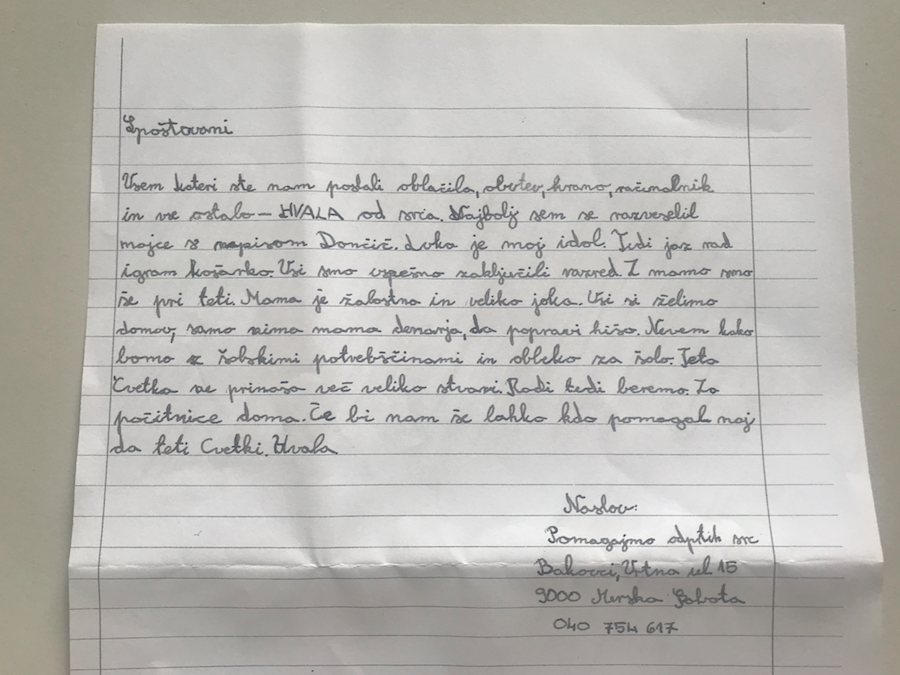 Spoštovani
Vsem kateri ste nam poslali oblačila, obutev, hrano, računalnik
in vse ostalo – HVALA od srca. Najbolj sem se razveselil
majce s napisom Dončič. Luka je moj idol. Tudi jaz rad
igram košarko. Vsi smo uspešno zaključili razred. Z mamo smo
še pri teti. Mama je žalostna in veliko joka. Vsi si želimo
domov, samo nima mama denarja, da popravi hišo. Nevem kako
bomo z šolskimi potrebščinami in obleko za šolo. Teta
Cvetka ne prinaša več veliko stvari. Radi tudi beremo. Za
počitnice doma. Če bi nam še lahko kdo pomagal naj
da teti Cvetki. Hvala
Naslov:
Pomagajmo odprtih src
Bakovci, Vrtna ul. 15
9000 Murska Sobota
040 754 617